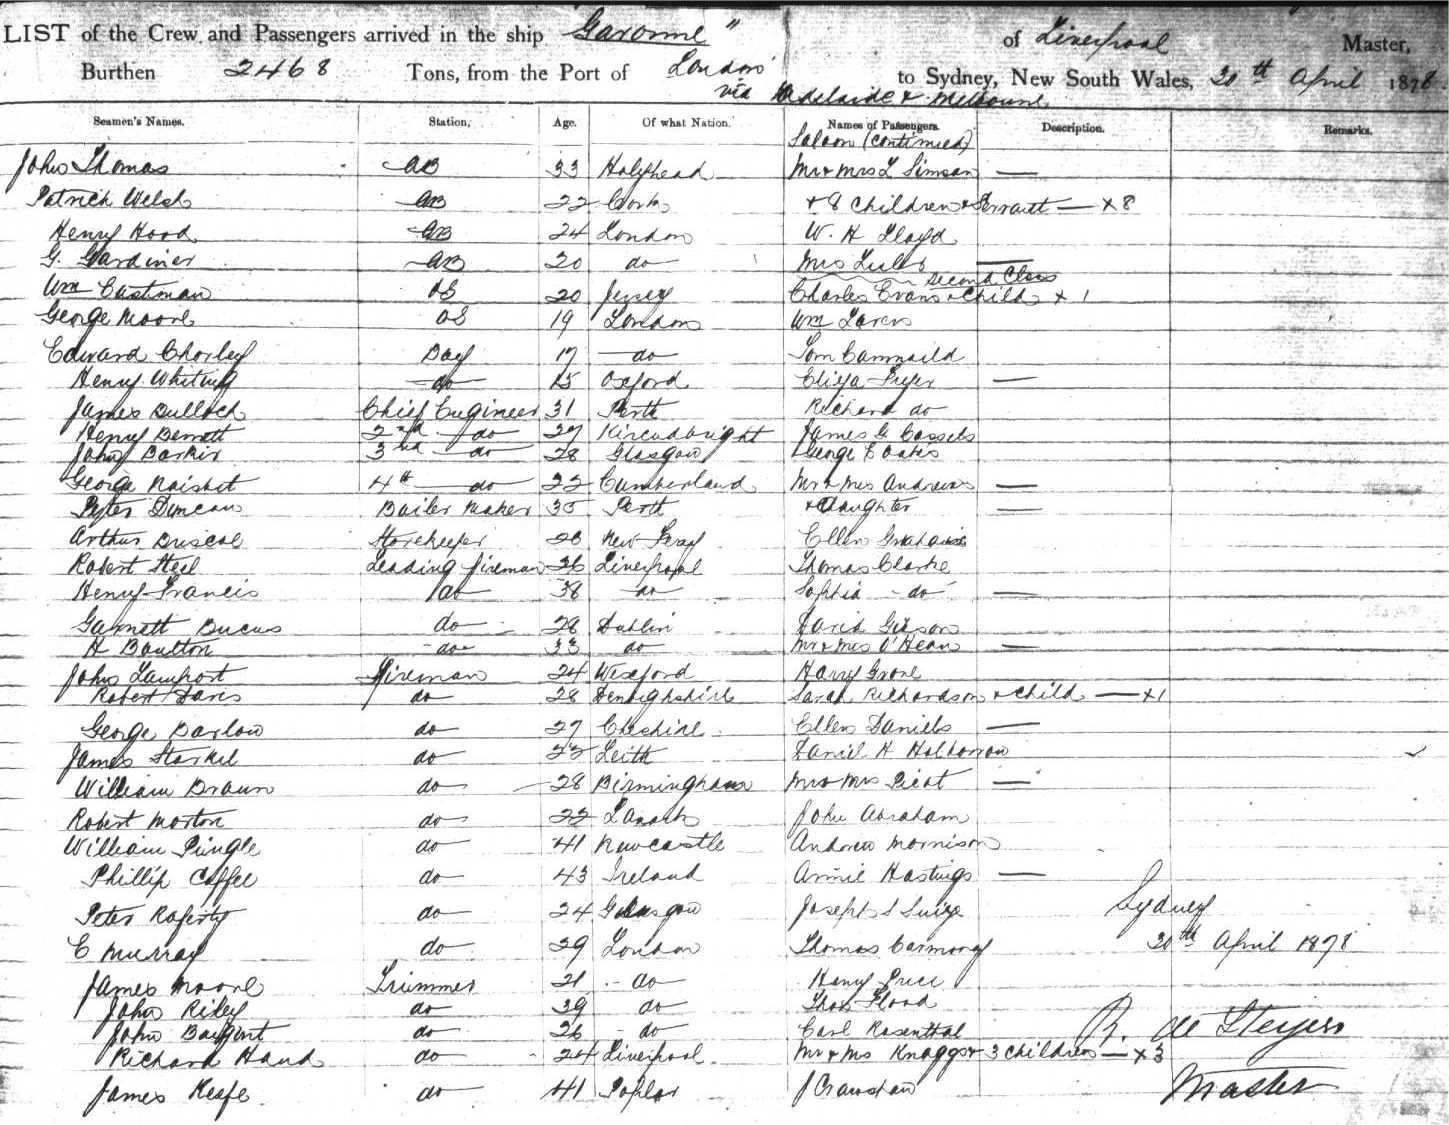 LIST of the Crew and Passengers arrived in the ship "Garonne" of Liverpool Master,
Burthen 2468 Tons, from the Port of London to Sydney, New South Wales, 20th April 1878
via Adelaide & Melbourne
Seamen's Names. Station, Age. Of what Nation. Names of Passengers. Description. Remarks.
Saloon (continued)
John Thomas AB 33 Holyhead Mr & Mrs L Simson —
Patrick Welsh AB 22 Cork & 8 children & Servant — x 8
Henry Hood AB 24 London W. H Lloyd
G. Gardiner AB 20 do Mrs —
Second Class
Wm Eastman OS 20 Jersey Charles Evans & Child x 1
George Moore OS 19 London Wm
Edward Chorley Boy 17 do Tom
Henry Whiting do 15 Oxford Eliza Fryer —
James Bullock Chief Engineer 31 Perth Richard do
Henry Bennett 2nd do 27 Kircudbright James G Cassels
John Barkir 3rd do 28 Glasgow George Coates
George Naisbet 4th do 22 Cumberland Mr & Mrs Andrews —
Peter Duncan Boiler Maker 35 Perth & Daughter —
Arthur Driscol Storekeeper 26 Ellen
Robert Steel Leading fireman 36 Liverpool Thomas Clarke
Henry Francis do 38 do Sophia do —
Garnett do 28 Dublin David Gibson
H Boulton do 33 do Mr & Mrs O'Hean —
John Lamport fireman 24 Wexford Harry Grove
Robert Davis do 28 Denbighshire Sarah Richardson & Child — x 1
George Barlow do 27 Cheshire Ellen Daniels —
James do 22 Leith Daniel H
William Braun do 28 Birmingham Mr & Mrs —
Robert Morton do 22 Lanark John Abraham
William Pringle do 41 Newcastle Andrew Morrison
Phillip Coffee do 43 Ireland Annie Hastings —
Peter Raferty do 24 Glasgow Joseph S Sydney
E Murray do 29 London Thomas 20th April 1878
James Moore Trimmer 21 do Henry Price
John Riley do 39 do Thos Flood
John do 26 do Carl Rosenthal R. de Steiger
Richard Hand do 24 Liverpool Mr & Mrs Knaggs & 3 children — x 3
James Keefe do 41 Poplar J Crawshaw Master